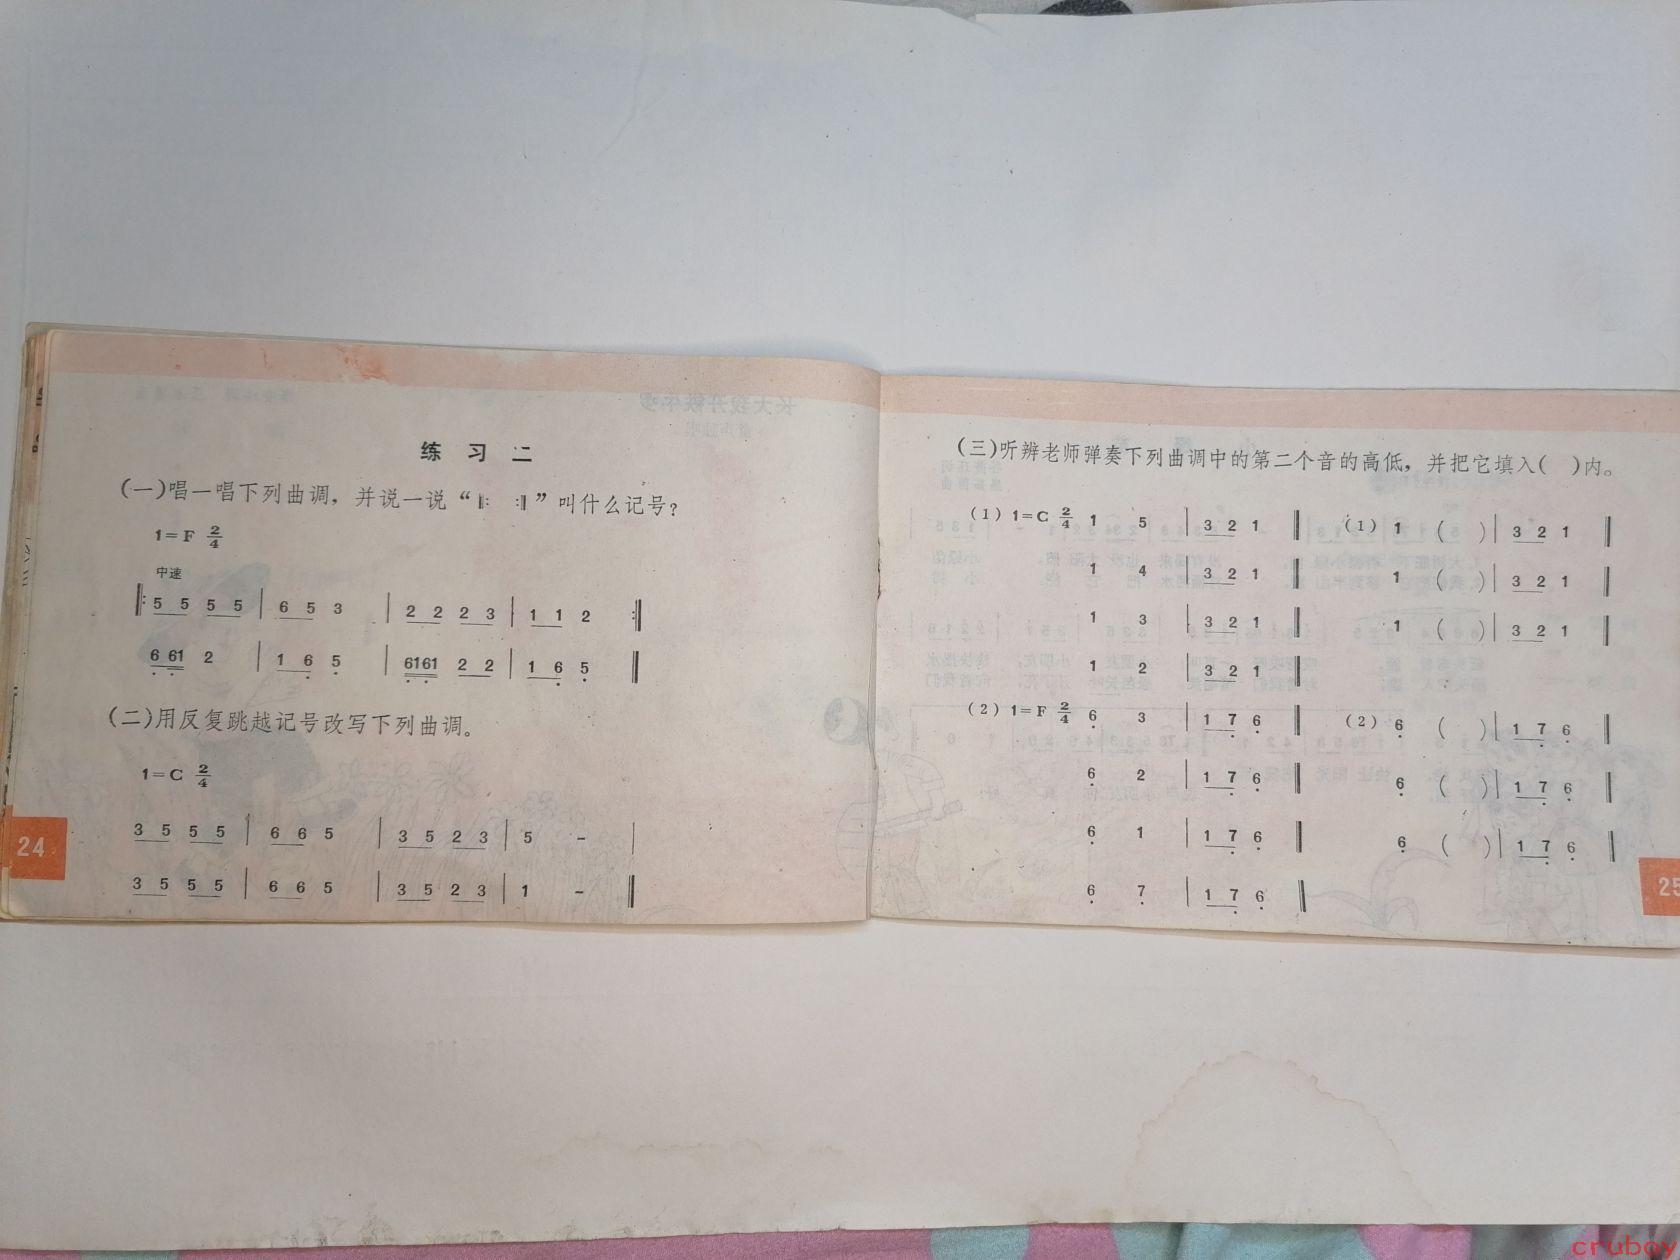 练 习 二
(一)唱一唱下列曲调，并说一说“‖: :‖”叫什么记号？
1=F 2/4
中速
‖: 5 5 5 5 | 6 5 3 | 2 2 2 3 | 1 1 2 :‖
6 61 2 | 1 6 5 | 6161 2 2 | 1 6 5 ‖
(二)用反复跳越记号改写下列曲调。
1=C 2/4
3 5 5 5 | 6 6 5 | 3 5 2 3 | 5 - |
3 5 5 5 | 6 6 5 | 3 5 2 3 | 1 - ‖
24
(三)听辨老师弹奏下列曲调中的第二个音的高低，并把它填入( )内。
(1) 1=C 2/4 1 5 | 3 2 1 ‖ (1) 1 ( ) | 3 2 1 ‖
1 4 | 3 2 1 ‖ 1 ( ) | 3 2 1 ‖
1 3 | 3 2 1 ‖ 1 ( ) | 3 2 1 ‖
1 2 | 3 2 1 ‖
(2) 1=F 2/4 6 3 | 1 7 6 ‖ (2) 6 ( ) | 1 7 6 ‖
6 2 | 1 7 6 ‖ 6 ( ) | 1 7 6 ‖
6 1 | 1 7 6 ‖ 6 ( ) | 1 7 6 ‖
6 7 | 1 7 6 ‖
25
cruboy